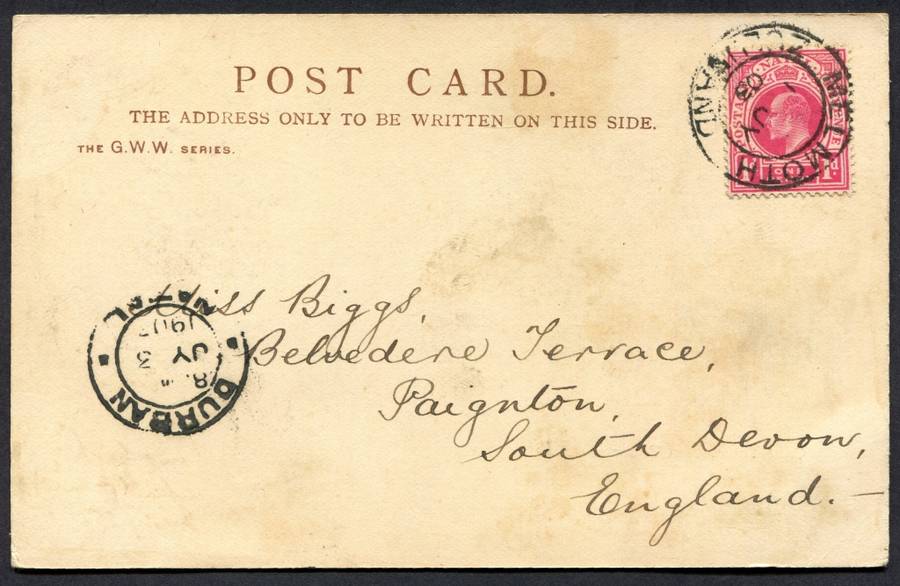 POST CARD.
THE ADDRESS ONLY TO BE WRITTEN ON THIS SIDE.
THE G.W.W. SERIES.
POSTAGE NATAL
1d
MELMOTH
ZULULAND
JY
03
Miss Biggs,
Belvedere Terrace,
Paignton,
South Devon,
England.—
DURBAN
NATAL
JY 3